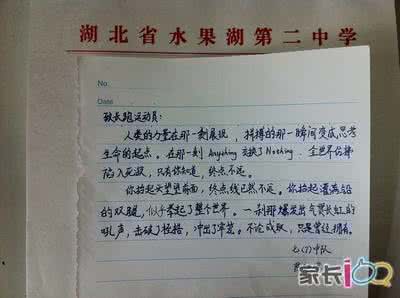 湖北省水果湖第二中学
No.
Date
致长跑运动员:
人类的力量在那一刻展现,拼搏的那一瞬间变成思考
生命的起点。在那一刻Anything 变换了Nothing.全世界仿佛
陷入死寂,只有你知道,终点不远。
你抬起头望望前面,终点线已然不远。你抬起灌满铅
的双腿,似乎牵起了整个世界。一刹那爆发出气贯长虹的
吼声,击破了桎梏,冲出了牢笼。不论成败,只是曾经拥有。
七(7)中队
家长100